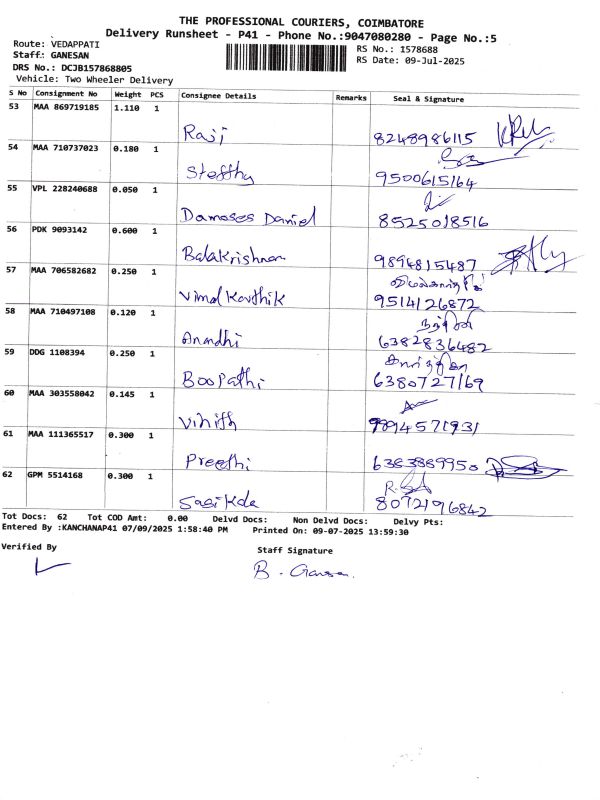 THE PROFESSIONAL COURIERS, COIMBATORE
Delivery Runsheet - P41 - Phone No.:9047080280 - Page No.:5
Route: VEDAPPATI RS No.: 1578688
Staff: GANESAN RS Date: 09-Jul-2025
DRS No.: DCJB157868805
Vehicle: Two Wheeler Delivery
S No Consignment No Weight PCS Consignee Details Remarks Seal & Signature
53 MAA 869719185 1.110 1
Raji 8248986115
54 MAA 710737023 0.180 1
Steffhy 9500615164
55 VPL 228240688 0.050 1
Damoses Daniel 8525018516
56 PDK 9093142 0.600 1
Balakrishnan 9894815487
57 MAA 706582682 0.250 1 விமல்கார்த்திக்
Vimal Karthik 9514126872
58 MAA 710497108 0.120 1
Anandhi 6382836482
59 DDG 1108394 0.250 1
Boopathi 6380727169
60 MAA 303558042 0.145 1
Vinith 9894571931
61 MAA 111365517 0.300 1
Preethi 6383869950
62 GPM 5514168 0.300 1
Sasi Kala 8072196842
Tot Docs: 62 Tot COD Amt: 0.00 Delvd Docs: Non Delvd Docs: Delvy Pts:
Entered By :KANCHANAP41 07/09/2025 1:58:40 PM Printed On: 09-07-2025 13:59:30
Verified By Staff Signature
B. Ganesan.